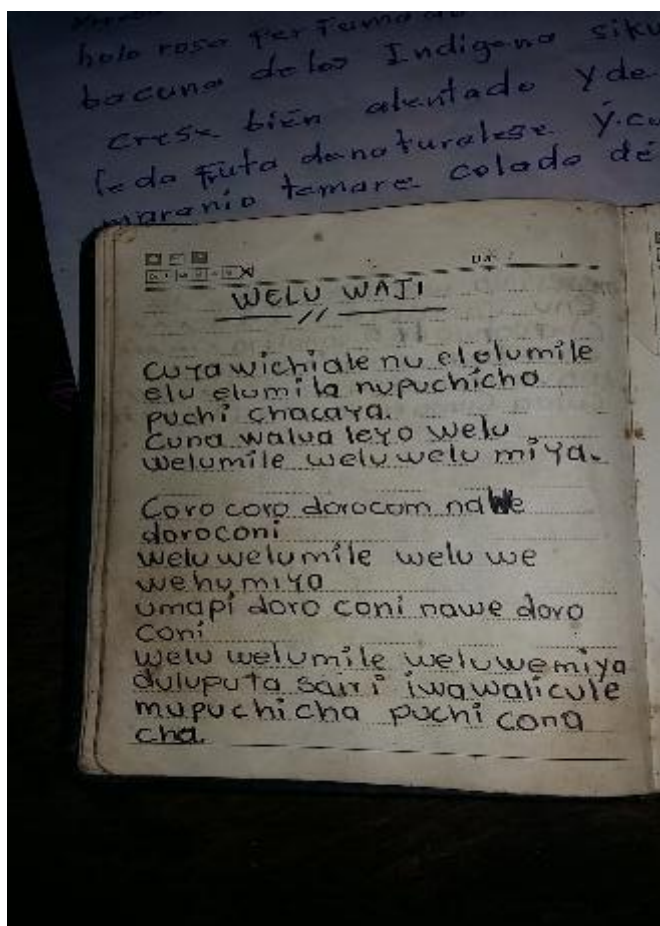 holo rosa perfumado
bacuna delos Indigena siku
crese bién alentado y de
le da fruta denaturalese y.cu
maranio tamare colado dé
WELU WAJI
cura wichiale nu elelumile
elu elumila nupuchicho
puchi chacaya.
Cuna walua leyo welu
welumile welu welu miya.
Coro coro dorocom nawe
doroconi
Welu welumile welu we
wehumiya
umapi doro coni nawe doro
coni
welu welumile weluwemiya
duluputa sairi iwawalicule
mupuchicha puchi cona
cha.